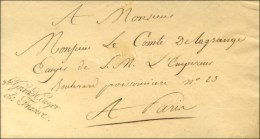 A Monsieur
Monsieur Le Comte Delagrange
Ecuyer de S.M. L'Empereur
Boulevard poissonnière n° 23
A Paris
Le Grand